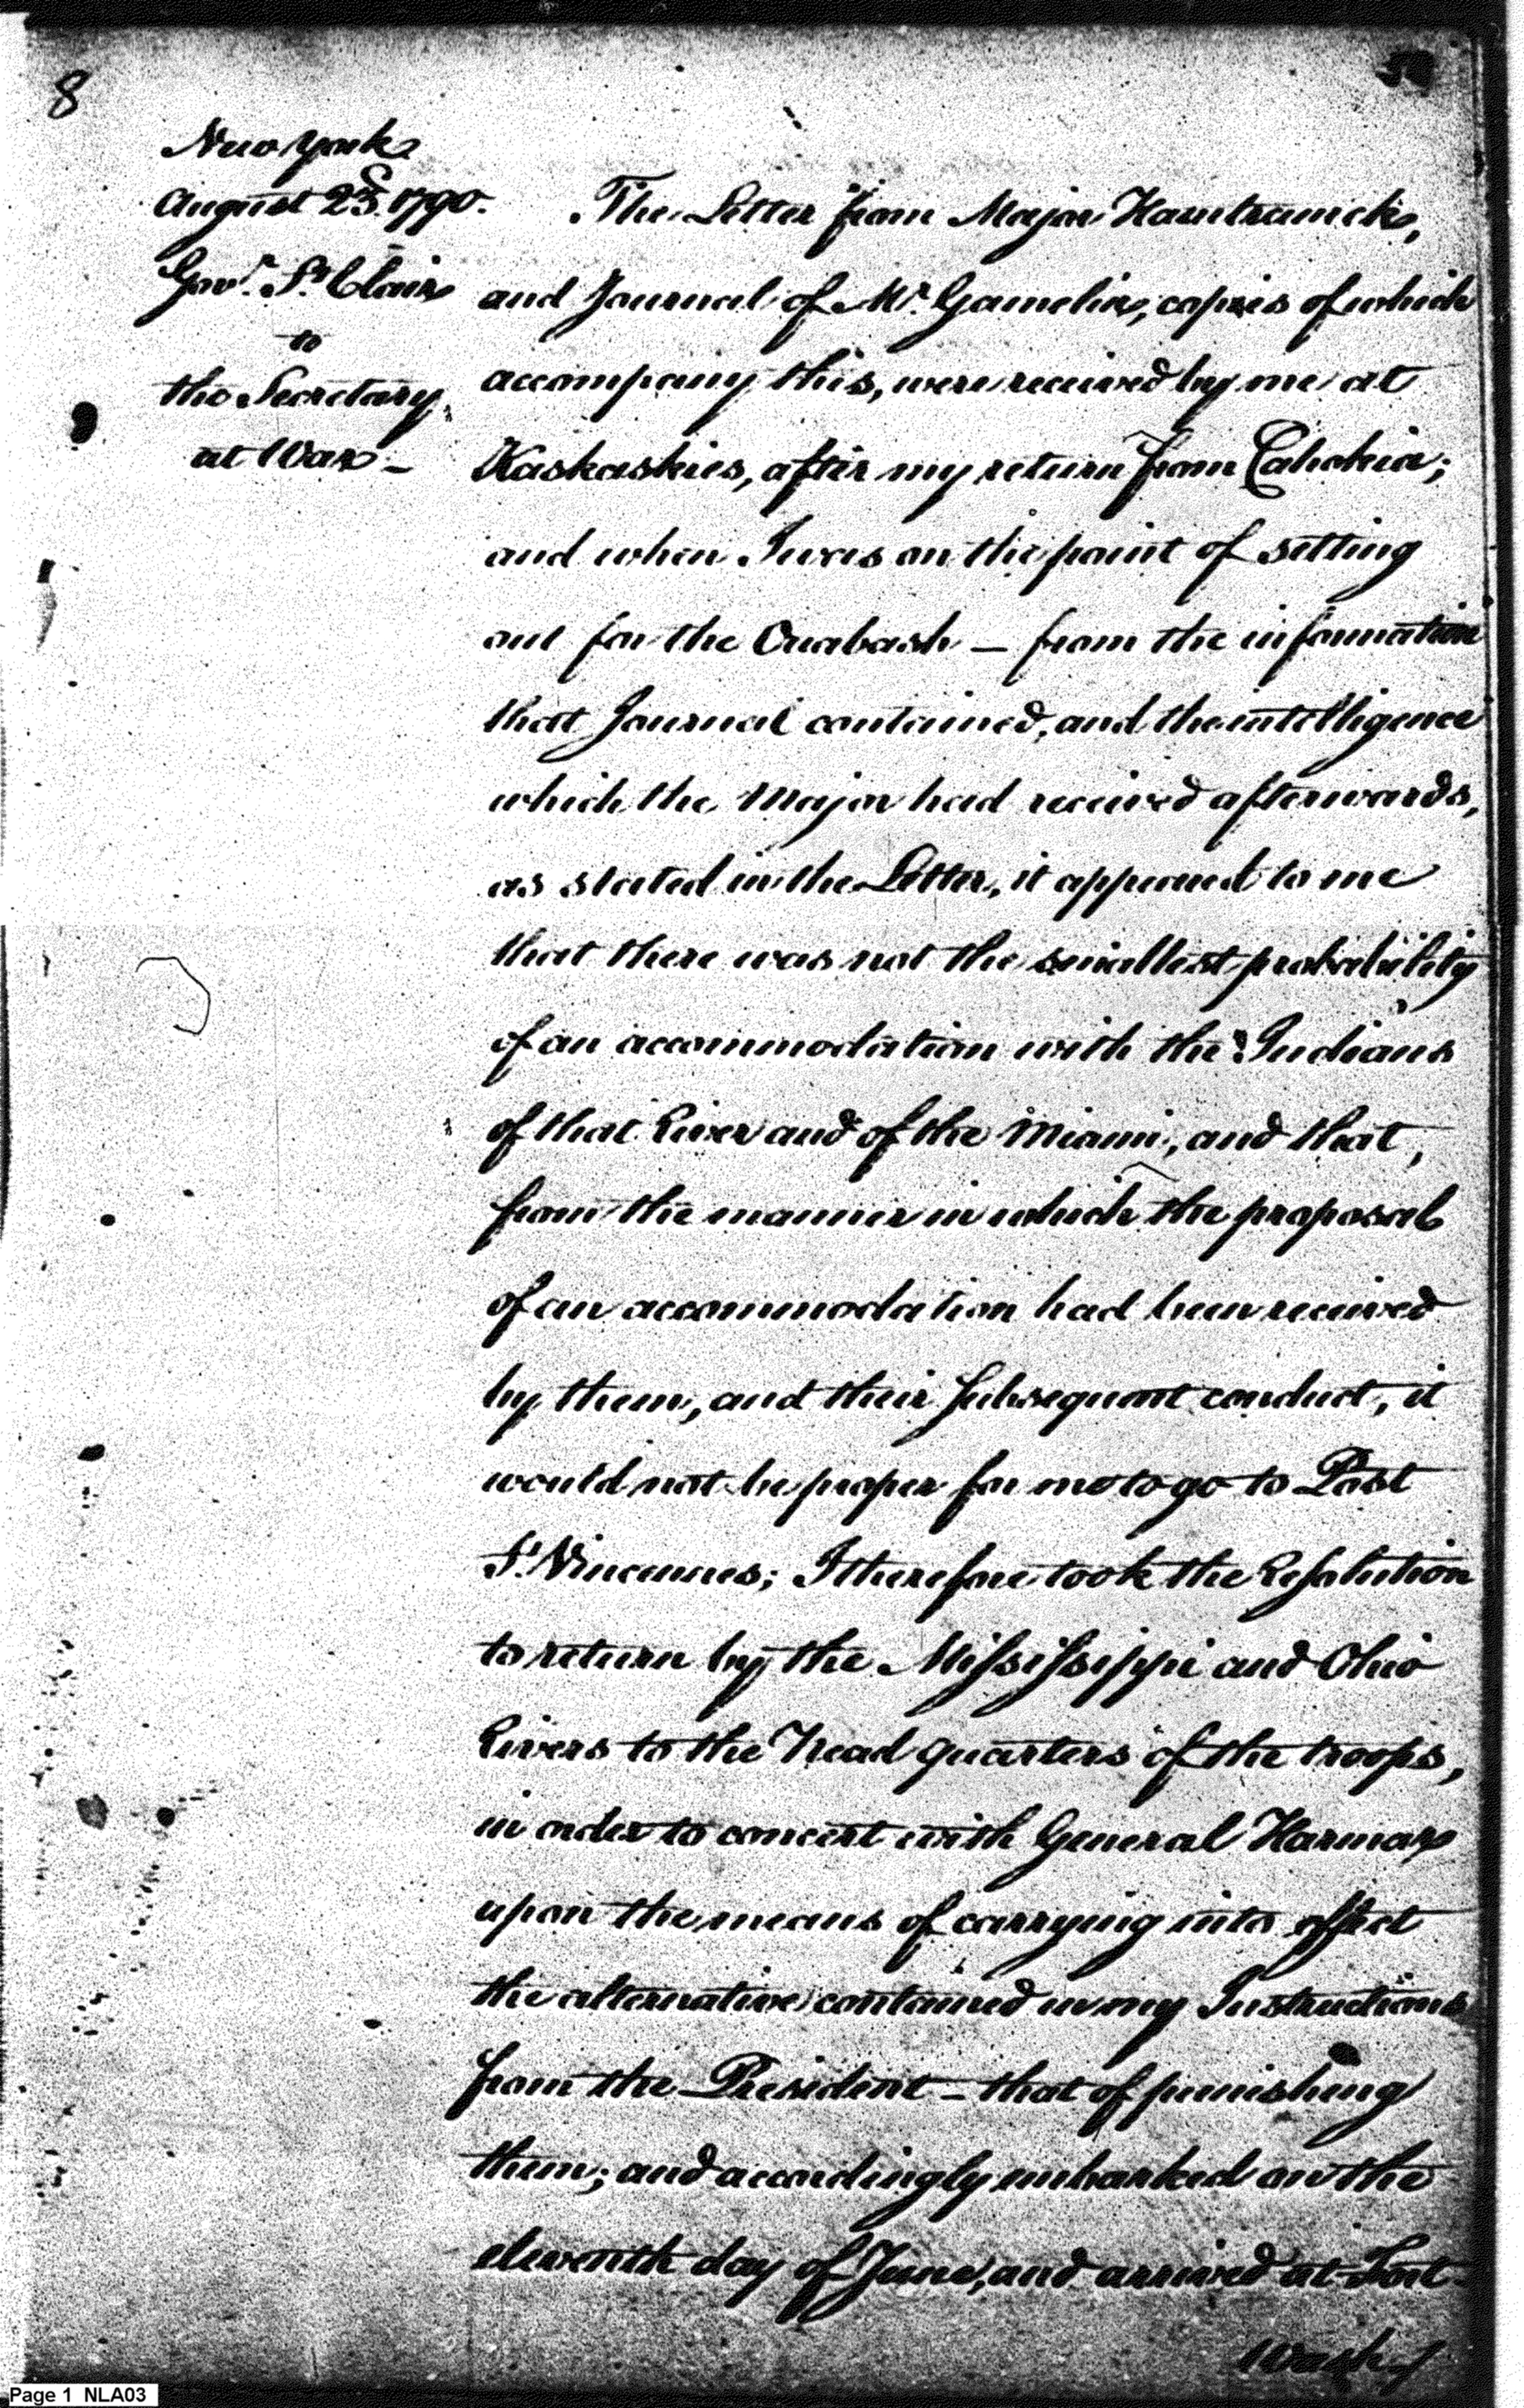 8
New York
August 23.d 1790.
Gov.r S.t Clair
to
the Secretary
at War –
The Letter from Major Hamtramck,
and Journal of M.r Gamelin, copies of which
accompany this, were received by me at
Kaskaskies, after my return from Cahokia;
and when I was on the point of setting
out for the Ouabash – from the information
that Journal contained, and the intelligence
which the Major had received afterwards,
as stated in the Letter, it appeared to me
that there was not the smallest probability
of an accommodation with the Indians
of that River and of the Miami, and that,
from the manner in which the proposal
of an accommodation had been received
by them, and their subsequent conduct, it
would not be proper for me to go to Post
S.t Vincennes; I therefore took the Resolution
to return by the Mississippi and Ohio
Rivers to the Head Quarters of the troops,
in order to concert with General Harmar
upon the means of carrying into effect
the alternative contained in my Instructions
from the President – that of punishing
them; and accordingly embarked on the
eleventh day of June, and arrived at Fort
Wash
Page 1 NLA03